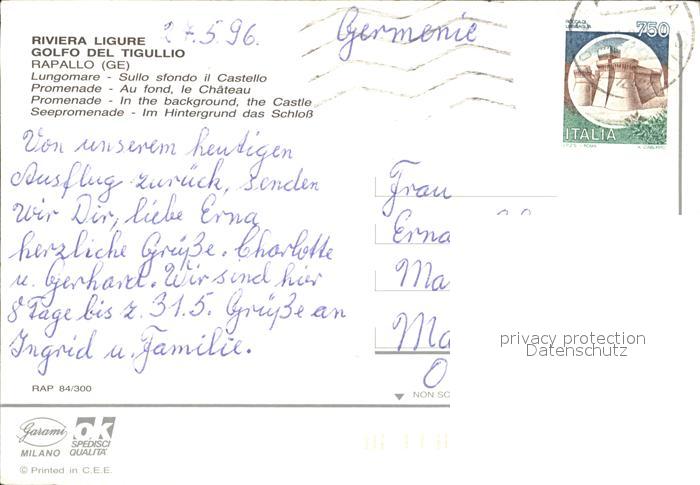 RIVIERA LIGURE
GOLFO DEL TIGULLIO
RAPALLO (GE)
Lungomare - Sullo sfondo il Castello
Promenade - Au fond, le Château
Promenade - In the background, the Castle
Seepromenade - Im Hintergrund das Schloß
27.5.96.
Germenie
750
ITALIA
Von unserem heutigen
Ausflug zurück, senden
Wir Dir, liebe Erna
herzliche Grüße. Charlotte
u. Gerhard. Wir sind hier
8 Tage bis z. 31.5. Grüße an
Ingrid u. Familie.
Frau
Erna
Ma
Ma
O
privacy protection
Datenschutz
RAP 84/300
NON SC
Garami
MILANO
OK
SPEDISCI
QUALITÀ
© Printed in C.E.E.